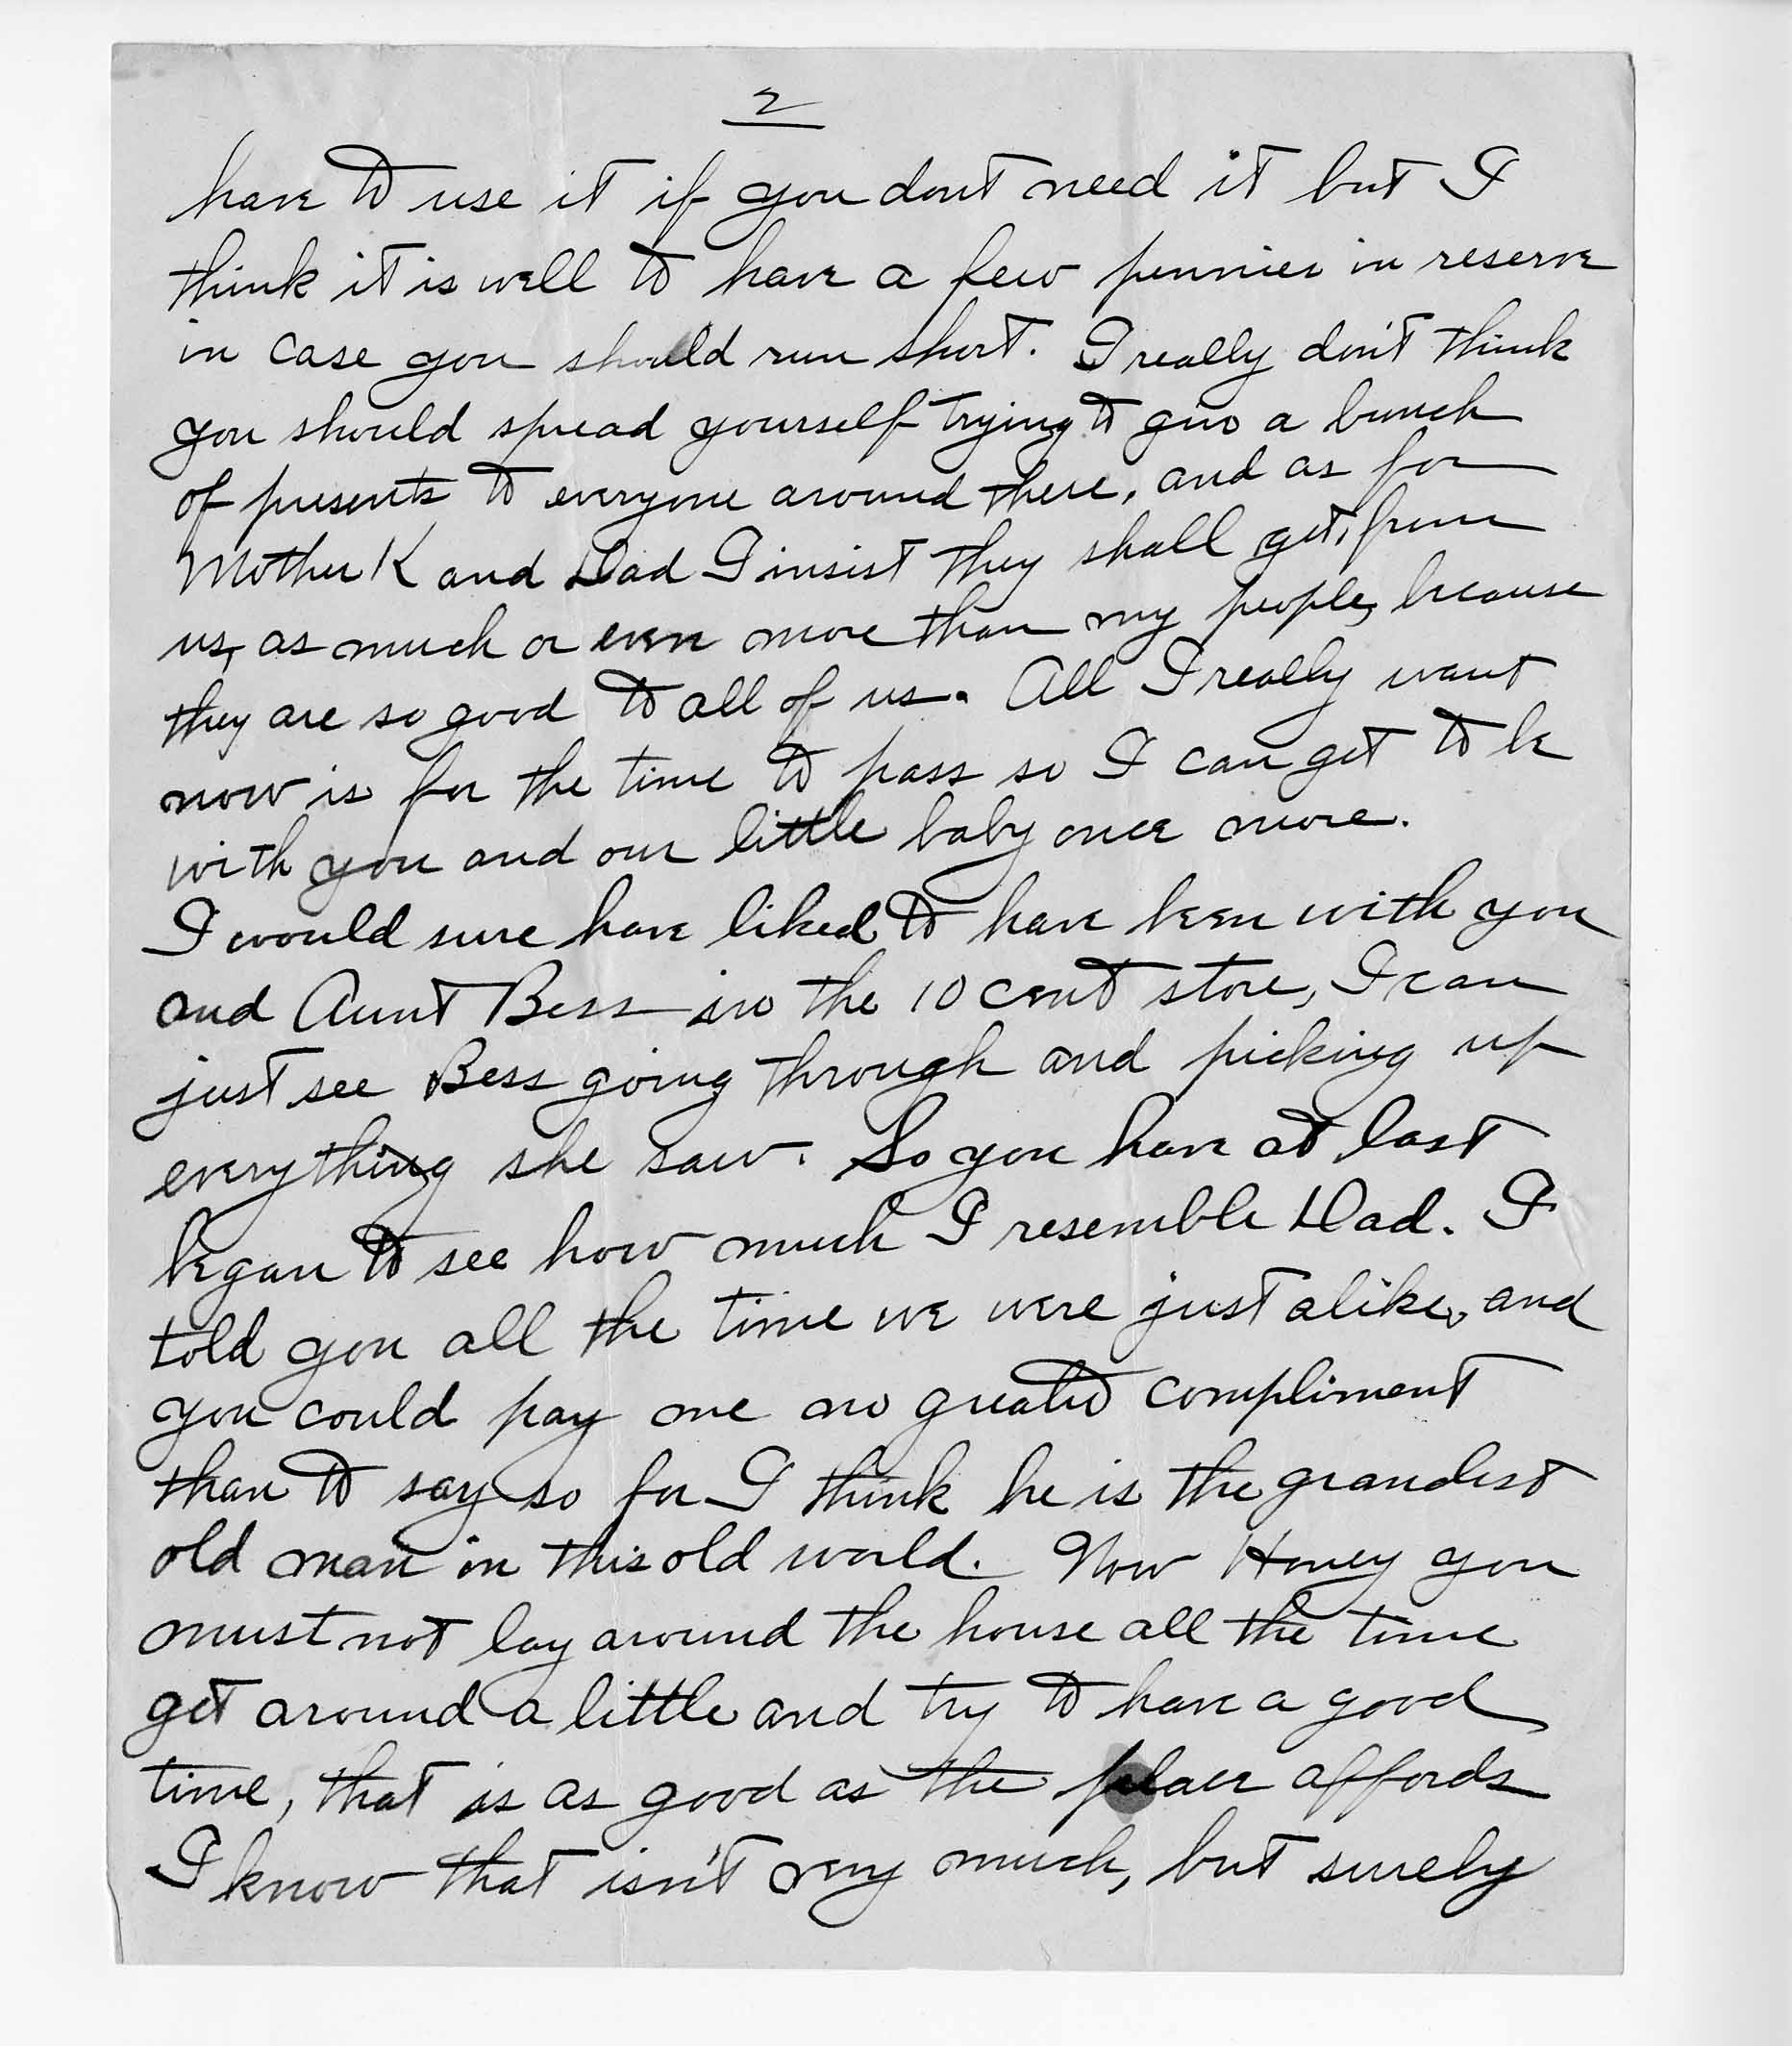 2
have to use it if you dont need it but I
think it is well to have a few pennies in reserve
in case you should run short. I really don't think
you should spread yourself trying to give a bunch
of presents to everyone around there, and as for
Mother K and Dad I insist they shall get, from
us, as much or even more than my people, because
they are so good to all of us. All I really want
now is for the time to pass so I can get to be
with you and our little baby once more.
I would sure have liked to have been with you
and Aunt Bess in the 10 cent store, I can
just see Bess going through and picking up
everything she saw. So you have at last
began to see how much I resemble Dad. I
told you all the time we were just alike, and
you could pay me no greater compliment
than to say so for I think he is the grandest
old man in this old world. Now Honey you
must not lay around the house all the time
get around a little and try to have a good
time, that is as good as the place affords
I know that isn't very much, but surely